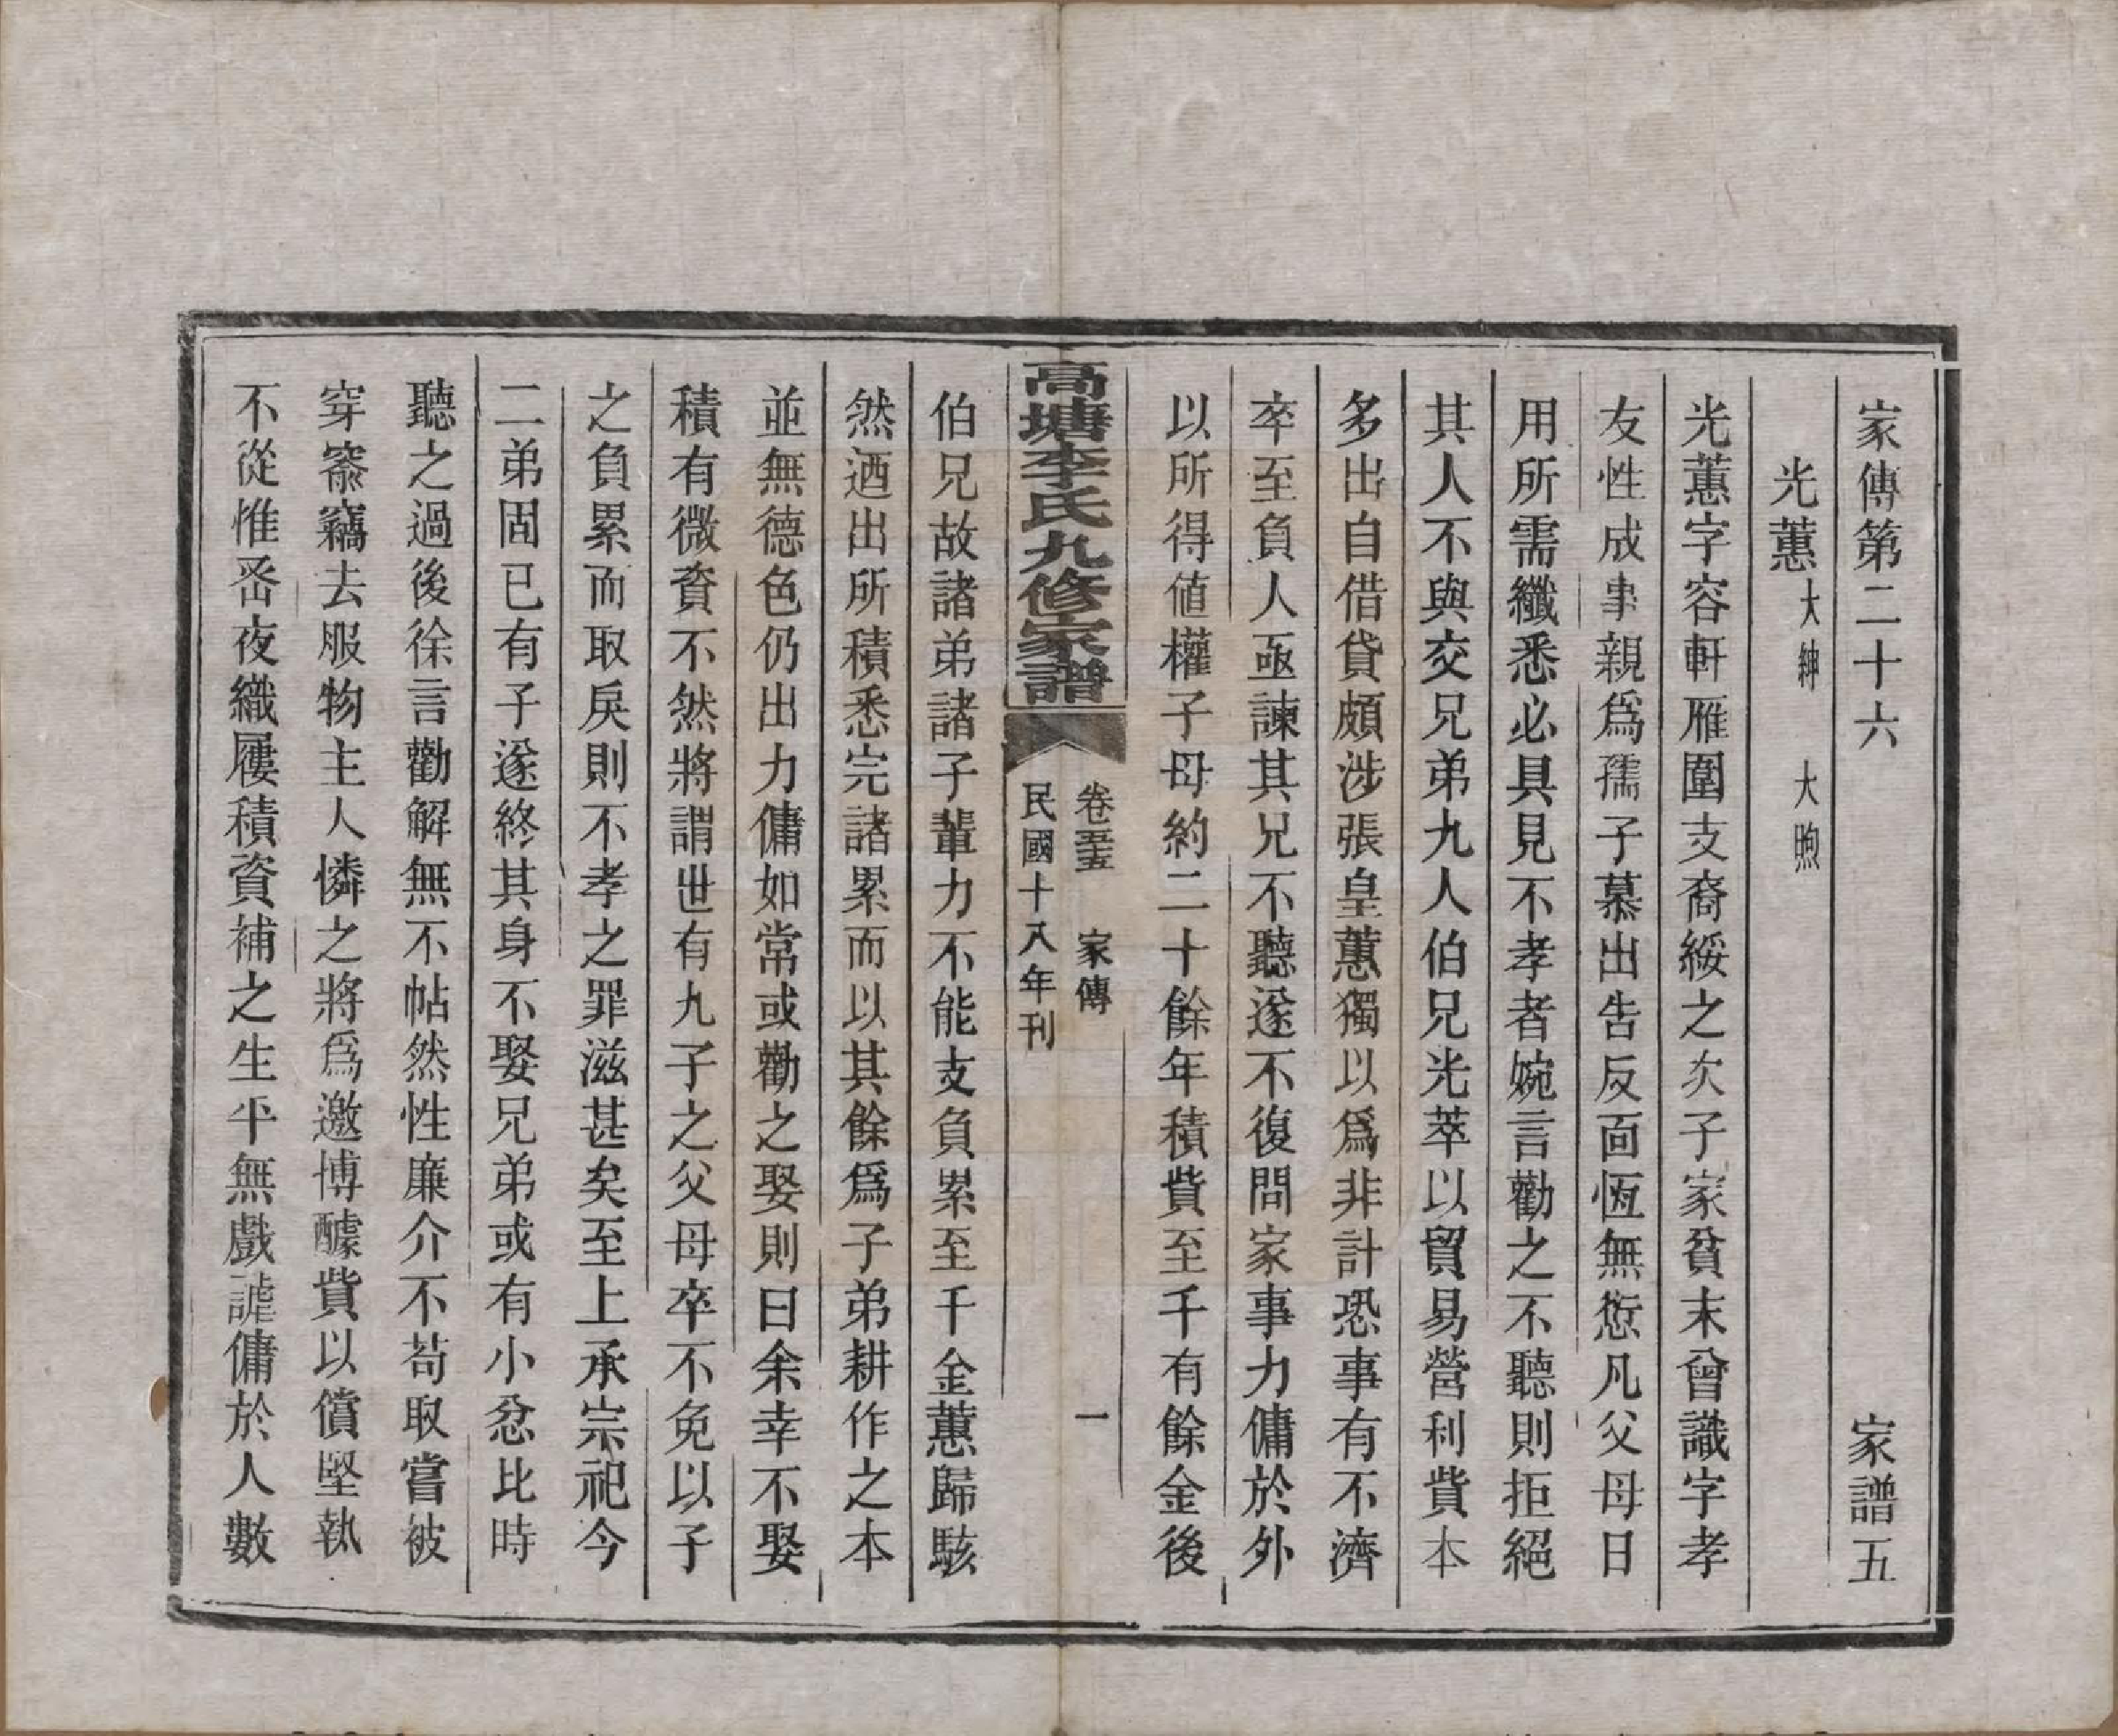 家傳第二十六　家譜五
光蕙　大紳　大煦
光蕙字容軒雁圍支裔綏之次子家貧未曾識字孝
友性成事親爲孺子慕出告反面恆無愆凡父母日
用所需纖悉必具見不孝者婉言勸之不聽則拒絕
其人不與交兄弟九人伯兄光萃以貿易營利貲本
多出自借貸頗涉張皇蕙獨以爲非計恐事有不濟
卒至負人亟諫其兄不聽遂不復問家事力傭於外
以所得値權子母約二十餘年積貲至千有餘金後
高塘李氏九修家譜　卷五　家傳　一
民國十八年刊
伯兄故諸弟諸子輩力不能支負累至千金蕙歸駭
然迺出所積悉完諸累而以其餘爲子弟耕作之本
並無德色仍出力傭如常或勸之娶則曰余幸不娶
積有微資不然將謂世有九子之父母卒不免以子
之負累而取戾則不孝之罪滋甚矣至上承宗祀今
二弟固已有子遂終其身不娶兄弟或有小忿比時
聽之過後徐言勸解無不帖然性廉介不苟取嘗被
穿窬竊去服物主人憐之將爲邀博醵貲以償堅執
不從惟畨夜織屨積資補之生平無戲謔傭於人數